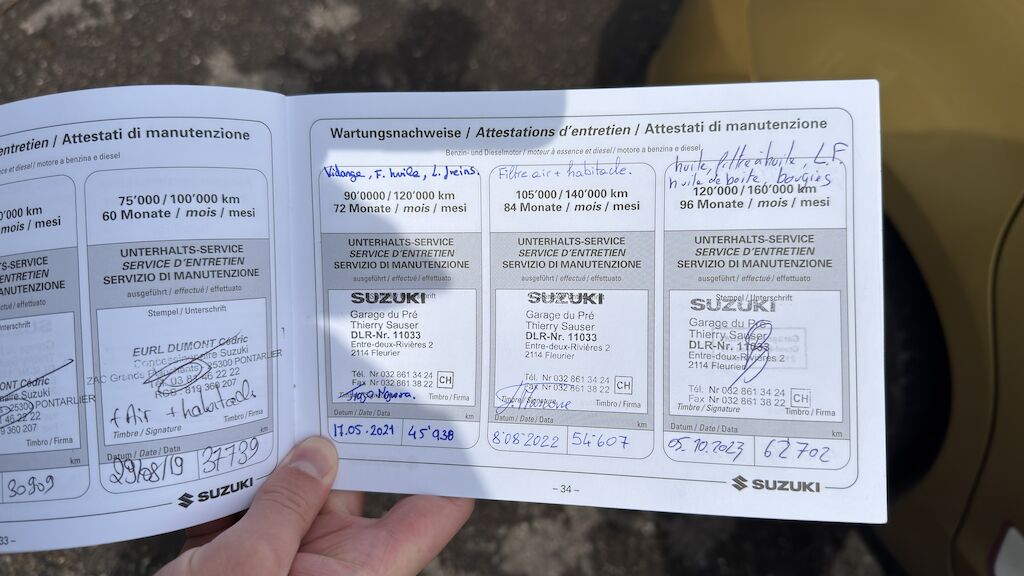 entretien / Attestati di manutenzione
ce et diesel / motore a benzina e diesel
0'000 km
mois / mesi
S-SERVICE
ENTRETIEN
MANUTENZIONE
effectué / effettuato
Unterschrift
MONT Cédric
Suzuki
PONTARLIER
9 360 207
Timbro / Firma
km
30909
33 –
75'000 / 100'000 km
60 Monate / mois / mesi
UNTERHALTS-SERVICE
SERVICE D'ENTRETIEN
SERVIZIO DI MANUTENZIONE
ausgeführt / effectué / effettuato
Stempel / Unterschrift
EURL DUMONT Cédric
Concessionnaire Suzuki
ZAC Grands 25300 PONTARLIER
Tél. 03 81 46 22 22
819 360 207
f Air + habitacle
Timbre / Signature Timbro / Firma
Datum / Date / Data km
29/08/19 37739
SUZUKI
Wartungsnachweise / Attestations d'entretien / Attestati di manutenzione
Benzin- und Dieselmotor / moteur à essence et diesel / motore a benzina e diesel
Vidange, F. huile, L. freins.
90'000 / 120'000 km
72 Monate / mois / mesi
UNTERHALTS-SERVICE
SERVICE D'ENTRETIEN
SERVIZIO DI MANUTENZIONE
ausgeführt / effectué / effettuato
SUZUKI
Garage du Pré
Thierry Sauser
DLR-Nr. 11033
Entre-deux-Rivières 2
2114 Fleurier
Tél. Nr 032 861 34 24
Fax Nr 032 861 38 22 CH
Timbro / Firma
Datum / Date / Data km
17.05.2021 45'938
Filtre air + habitacle.
105'000 / 140'000 km
84 Monate / mois / mesi
UNTERHALTS-SERVICE
SERVICE D'ENTRETIEN
SERVIZIO DI MANUTENZIONE
ausgeführt / effectué / effettuato
SUZUKI
Garage du Pré
Thierry Sauser
DLR-Nr. 11033
Entre-deux-Rivières 2
2114 Fleurier
Tél. Nr 032 861 34 24
Fax Nr 032 861 38 22 CH
Timbre / Signature Timbro / Firma
Datum / Date / Data km
8'08'2022 54'607
huile, filtre à huile, L.F.
huile de boite, bougies
120'000 / 160'000 km
96 Monate / mois / mesi
UNTERHALTS-SERVICE
SERVICE D'ENTRETIEN
SERVIZIO DI MANUTENZIONE
ausgeführt / effectué / effettuato
Stempel / Unterschrift
SUZUKI
Garage du Pré
Thierry Sauser
DLR-Nr. 11033
Entre-deux-Rivières 2
2114 Fleurier
Tél. Nr 032 861 34 24
Fax Nr 032 861 38 22 CH
Timbre / Signature Timbro / Firma
Datum / Date / Data km
05.10.2023 62702
– 34 –
SUZUKI